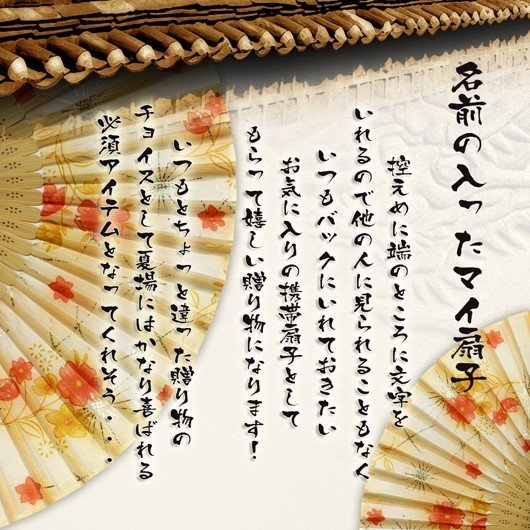 名前の入ったマイ扇子
控えめに端のところに文字を
いれるので他の人に見られることもなく
いつもバックにいれておきたい
お気に入りの携帯扇子として
もらって嬉しい贈り物になります!
いつもとちょっと違った贈り物の
チョイスとして夏場にはかなり喜ばれる
必須アイテムとなってくれそう・・・